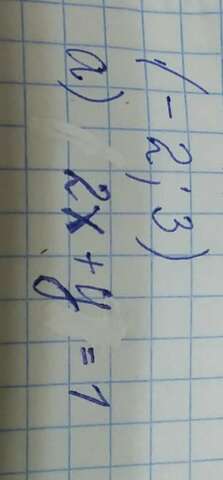 (-2; 3)
a) 2x + y = 1